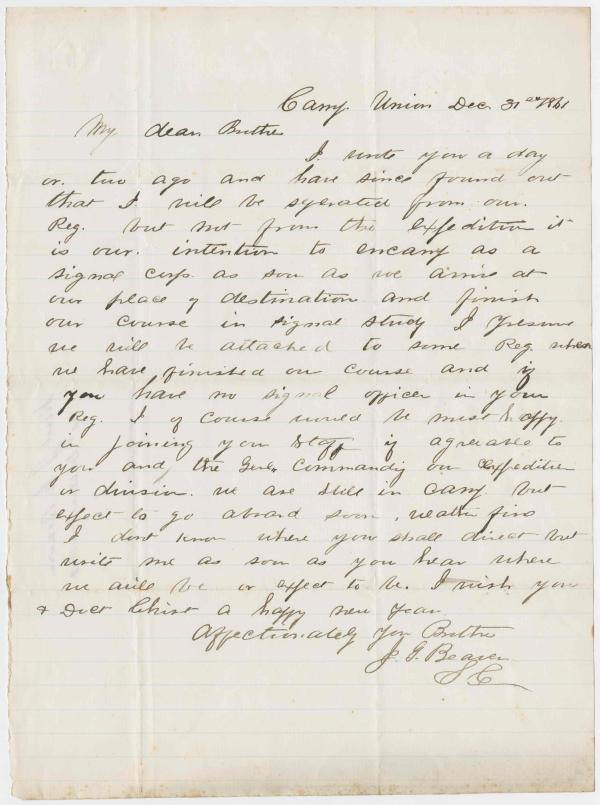 Camp Union Dec. 31st 1861
My dear Brother
I wrote you a day
or two ago and have since found out
that I will be seperated from our
Reg. but not from the expedition it
is our intention to encamp as a
signal corp. as soon as we arrive at
our place of destination and finish
our course in signal study I presume
we will be attached to some Reg. when
we have finished our course and if
you have no signal officer in your
Reg. I of course would be most happy
in joining your Staff if agreeable to
you and the Genl. Commanding our expedition
or division. we are still in camp but
expect to go aboard soon,
I dont know where you shall direct but
write me as soon as you hear where
we will be or expect to be. I wish you
& Doct Christ a happy new year
Affectionately your Brother
J. G. Beaver